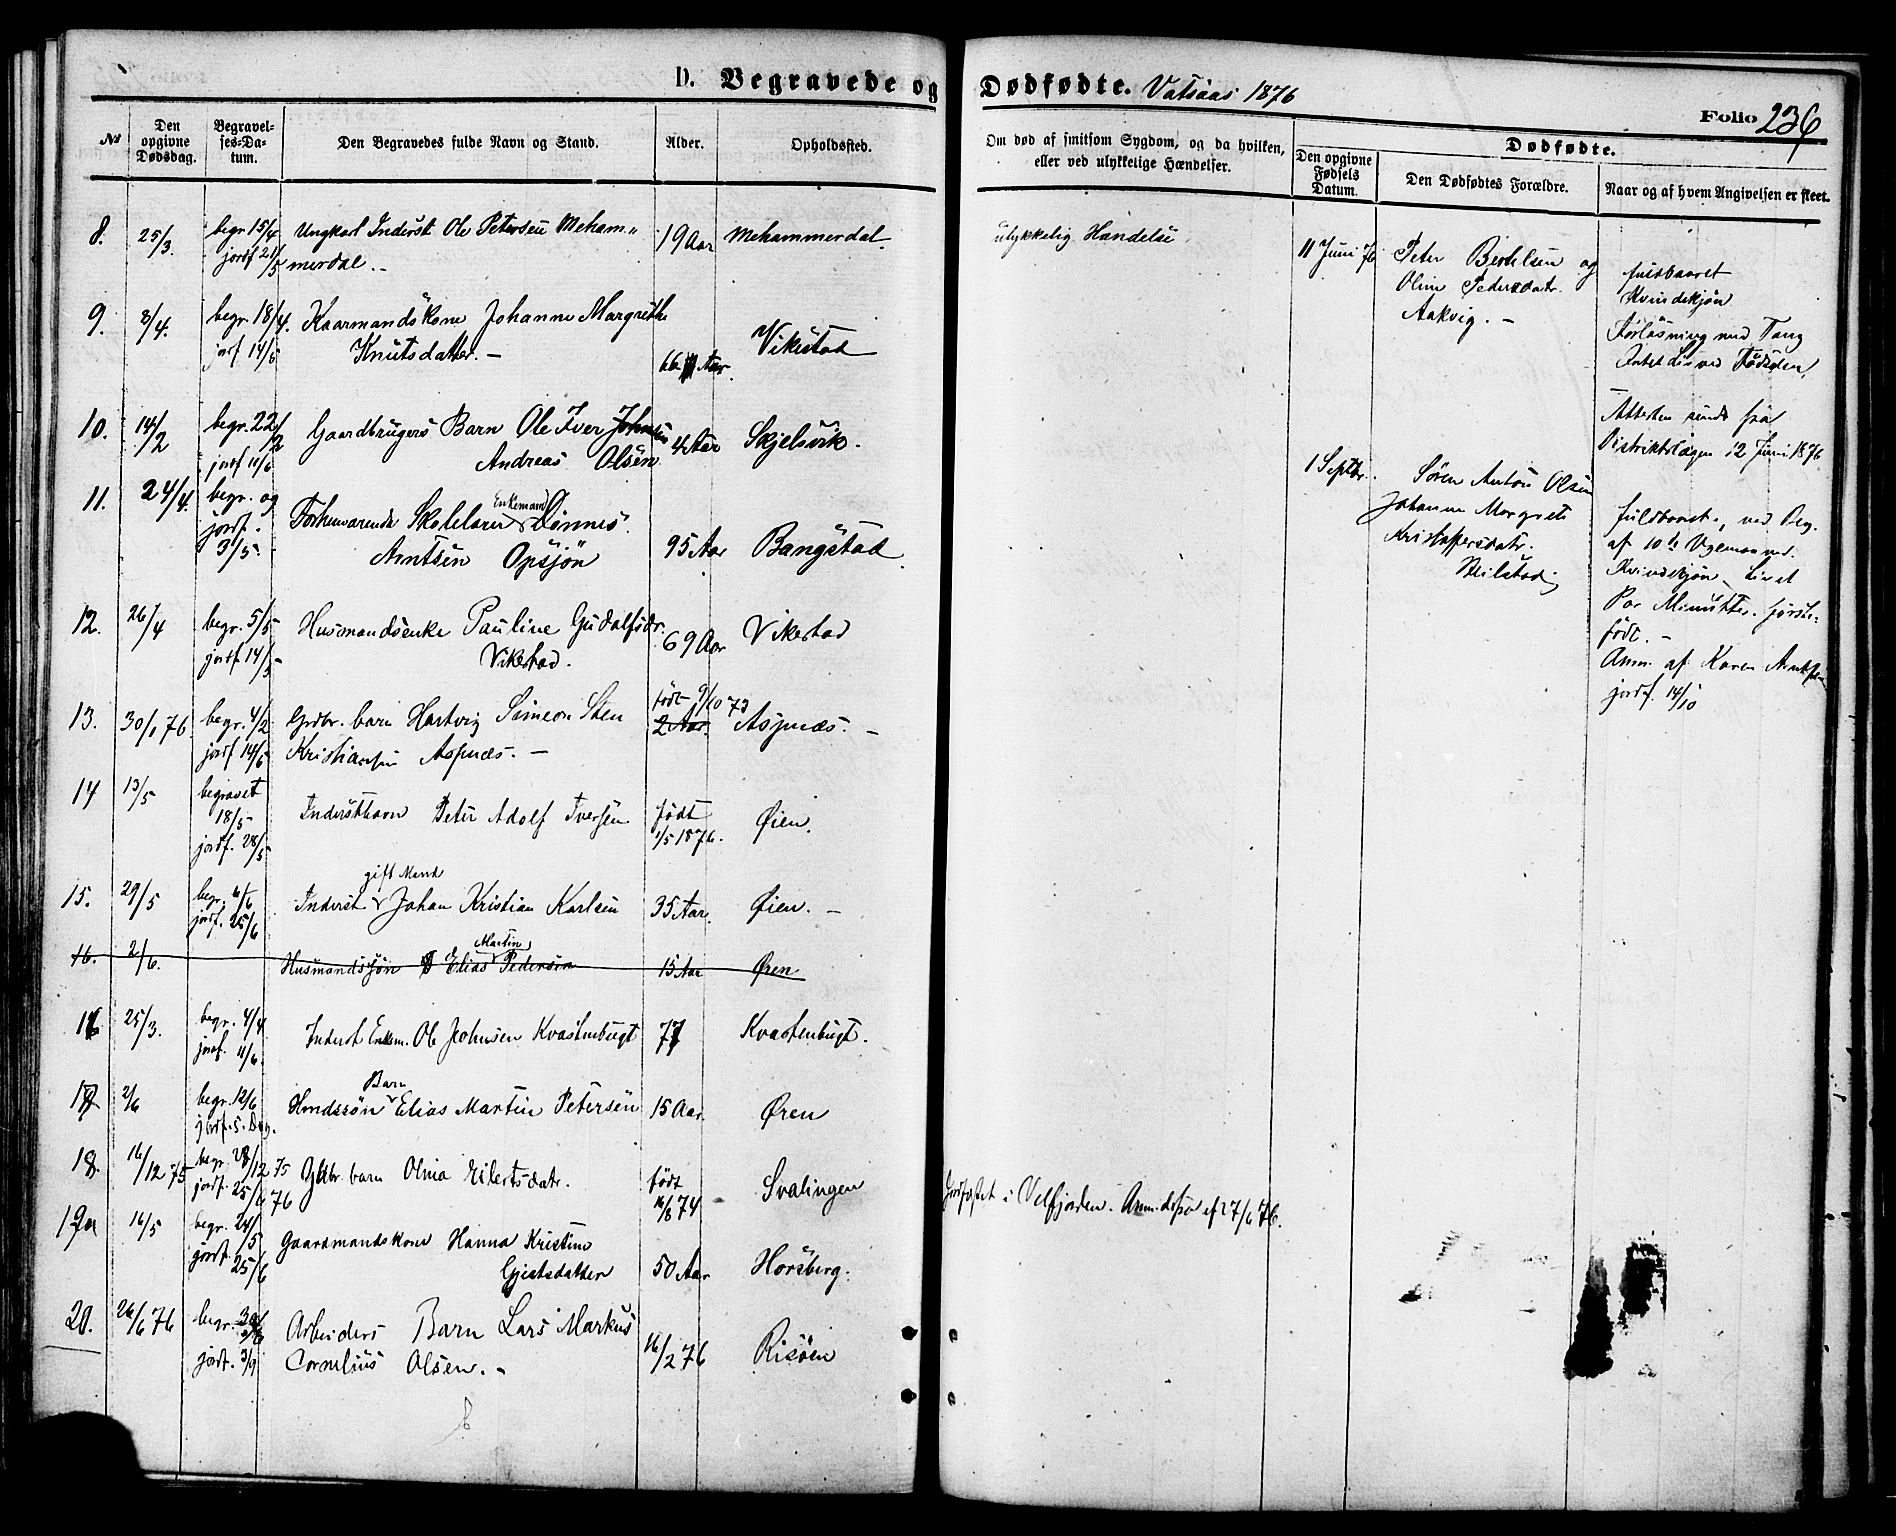 D. Begravede og Dødfødte. Vatsaas 1876
Folio 236
No
Den opgivne Dødsdag.
Begravelses-Datum.
Den Begravedes fulde Navn og Stand.
Alder.
Opholdssted.
Om død af smitsom Sygdom, og da hvilken, eller ved ulykkelige Hændelser.
Dødfødte.
Den opgivne Fødsels Datum.
Den Dødfødtes Forældre.
Naar og af hvem Angivelsen er skeet.
8. 25/3. begr 15/4 Ungkarl Inderst Ole Petersen Meham„ 19 Aar Mehammerdal ulykkelig Handelse
jordf 21/5 merdal.
9. 8/4. begr. 18/4. Kaarmandskone Johanne Margrethe Vikestad
jorf 14/5 Knutsdatter. — 66 Aar.
10. 14/2 begr. 22/2 Gaardbrugers Barn Ole Iver Johnsen 4 Aar Skjelsvik.
jordf 11/6 Andreas Olsen
11. 24/4. begr. og Forhenværende Skolelærer Enkemand Dønnes
jordf. 3/5. Arntsen Opsjön 95 Aar Bangstad
12. 26/4 begr. 5/5 Husmandsenke Pauline Gudolfsdr. 69 Aar Vikestad
jordf 14/5 Vikestad.
13. 30/1 76 begr. 4/2 Grdbr. barn Hartvig Simeon Sten født 9/10 73 2 Aar. Aspnæs. —
jordf 14/5 Kristiansen Aspnæs. —
14 13/5 begravet 18/5 Inderstbarn Peter Adolf Iversen født Øien.
jordf. 28/5 1/5 1876.
15. 29/5 begr. 6/6 Inderst gift Mand Johan Kristian Karlsen 35 Aar. Øien. —
jordf. 25/6
16. 2/6. Husmandssøn Elias Martin Pedersen 15 Aar Øren
16 25/3. begr. 4/4 Inderst Enkem. Ole Johnsen Kvastenbugt 77 Kvastenbugt.
jordf. 11/6.
17 2/6 begr. 12/6 Hmdssön Barn Elias Martin Petersen 15 Aar Øren
jordf. s. Dag.
18. 16/12 75 begr. 28/12 75 Gdbr. barn Olina Eilertsdatr. født Svalingen
jordf. 25/6 76 16/8 74 Jordfæstet i Velfjorden. 27/6 76.
19 16/5 begr. 24/5 Gaardmandskone Hanna Kristine
jordf. 25/6 Gjertsdatter 50 Aar Horsberg.
20. 26/6 76 begr. Arbeiders Barn Lars Markus 16/2 76 Risöen
jordf. 3/9 Cornelius Olsen. —
11 Juni 76 Peter Bertelsen og
Oline Pedersdatr.
Aakvig. —
fuldbaaret
Kvindekjøn
Forløsning med Tang
Intet Liv ved Fødselen.
Attesten sendt fra
Distriktslægen 12 Juni 1876
1 Septbr. Søren Anton Olsen
Johanne Margrete
Kristoffersdatr.
fuldbaaret, ved Beg.
af 10de
Kvindekjøn. Livet
Par Minutter. første-
født. —
Anm. af Karen
jordf. 14/10